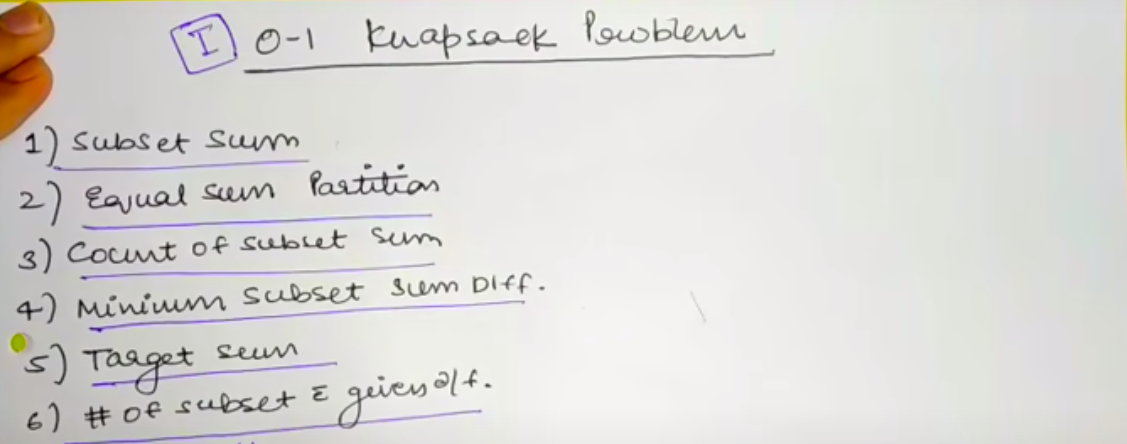 I 0-1 Knapsack Problem
1) Subset sum
2) Equal sum Partition
3) Count of subset sum
4) Minimum subset sum Diff.
5) Target sum
6) # of subset Σ given diff.